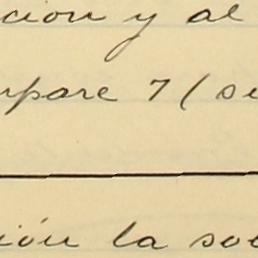 cion y al
mpare 7 (si
ión la sol